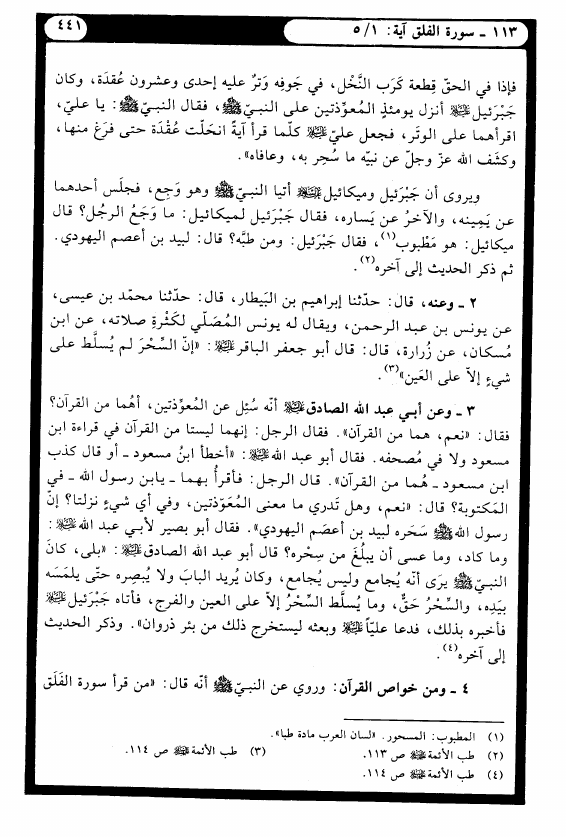 ١١٣ ـ سورة الفلق آية: ١/ ٥
٤٤١
فإذا في الحقّ قِطعة كَرَب النَّخْل، في جَوفِه وَتَرٌ عليه إحدى وعشرون عُقدَة، وكان
جَبْرَئيل عليه السلام أنزل يومئذٍ المعوِّذتين على النبيّ صلى الله عليه وآله، فقال النبيّ صلى الله عليه وآله: يا عليّ،
اقرأهما على الوتَر، فجعل عليّ عليه السلام كلّما قرأ آيةً انحَلّت عُقْدَة حتى فرَغ منها،
وكشَف الله عزّ وجلّ عن نبيّه ما سُحِر به، وعافاه».
ويروى أن جَبْرَئيل وميكائيل عليهما السلام أتيا النبيّ صلى الله عليه وآله وهو وَجِع، فجلَس أحدهما
عن يَمِينه، والآخرُ عن يَساره، فقال جَبْرَئيل لميكائيل: ما وَجَعُ الرجُل؟ قال
ميكائيل: هو مَطْبوب(١)، فقال جَبْرَئيل: ومن طبَّه؟ قال: لبيد بن أعصم اليهودي.
ثم ذكر الحديث إلى آخره(٢).
٢ ـ وعنه، قال: حدّثنا إبراهيم بن البَيطار، قال: حدّثنا محمّد بن عيسى،
عن يونس بن عبد الرحمن، ويقال له يونس المُصَلّي لكَثْرةِ صلاته، عن ابن
مُسكان، عن زُرارة، قال: قال أبو جعفر الباقر عليه السلام: «إنّ السِّحْرَ لم يُسلَّط على
شيءٍ إلاّ على العَين»(٣).
٣ ـ وعن أبي عبد الله الصادق عليه السلام أنّه سُئِل عن المُعوِّذتين، أهُما من القرآن؟
فقال: «نعم، هما من القرآن». فقال الرجل: إنهما ليستا من القرآن في قراءة ابن
مسعود ولا في مُصحفه. فقال أبو عبد الله عليه السلام: «أخطأ ابنُ مسعود ـ أو قال كذب
ابن مسعود ـ هُما من القرآن». قال الرجل: فأقرأُ بهما ـ يابن رسول الله ـ في
المَكتوبة؟ قال: «نعم، وهل تَدري ما معنى المُعَوّذتين، وفي أي شيءٍ نزلتا؟ إنّ
رسول الله صلى الله عليه وآله سَحَره لبيد بن أعصَم اليهودي». فقال أبو بصير لأبي عبد الله عليه السلام:
وما كاد، وما عسى أن يبلُغَ من سِحْره؟ قال أبو عبد الله الصادق عليه السلام: «بلى، كانَ
النبيّ صلى الله عليه وآله يرَى أنّه يُجامع وليس يُجامع، وكان يُريد البابَ ولا يُبصِره حتّى يلمَسَه
بيَدِه، والسِّحْرُ حقٌّ، وما يُسلَّط السِّحْرُ إلاّ على العين والفرج، فأتاه جَبْرَئيل عليه السلام
فأخبره بذلك، فدعا عليّاً عليه السلام وبعثه ليستخرج ذلك من بئر ذروان». وذكر الحديث
إلى آخره(٤).
٤ ـ ومن خواص القرآن: وروي عن النبيّ صلى الله عليه وآله أنّه قال: «من قرأ سورة الفَلَق
(١) المطبوب: المسحور. «لسان العرب مادة طبا».
(٢) طب الأئمة عليهم السلام ص ١١٣.
(٣) طب الأئمة عليهم السلام ص ١١٤.
(٤) طب الأئمة عليهم السلام ص ١١٤.